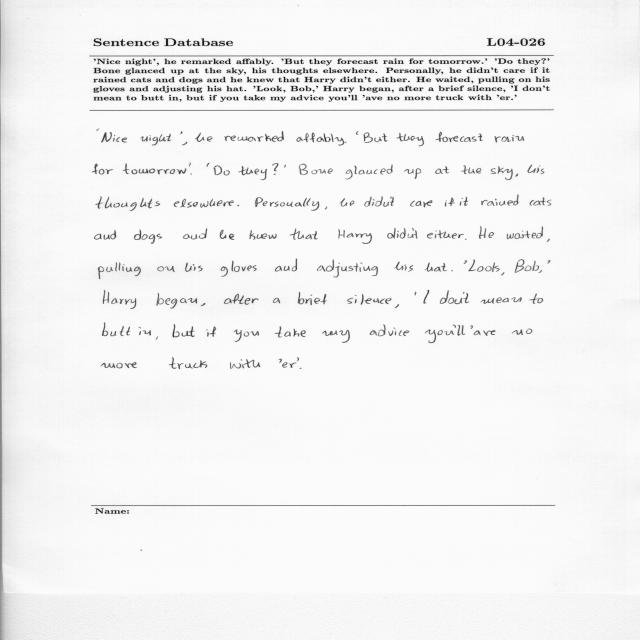 Sentence Database L04-026
'Nice night', he remarked affably. 'But they forecast rain for tomorrow.' 'Do they?'
Bone glanced up at the sky, his thoughts elsewhere. Personally, he didn't care if it
rained cats and dogs and he knew that Harry didn't either. He waited, pulling on his
gloves and adjusting his hat. 'Look, Bob,' Harry began, after a brief silence, 'I don't
mean to butt in, but if you take my advice you'll 'ave no more truck with 'er.'
'Nice night', he remarked affably. 'But they forecast rain
for tomorrow'. 'Do they?' Bone glanced up at the sky, his
thoughts elsewhere. Personally, he didn't care if it rained cats
and dogs and he knew that Harry didn't either. He waited,
pulling on his gloves and adjusting his hat. 'Look, Bob,'
Harry began, after a brief silence, 'I don't mean to
butt in, but if you take my advice you'll 'ave no
more truck with 'er'.
Name: